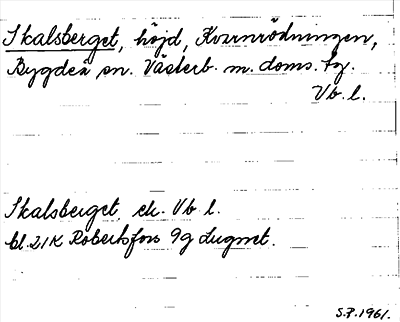 Skalsberget, höjd, Kvarnrödningen,
Bygdeå sn. Västerb. m. doms. tg.
Vb. l.
Skalsberget, ek. Vb l.
bl. 21K Robertsfors 9g Lugnet.
S.P. 1961.